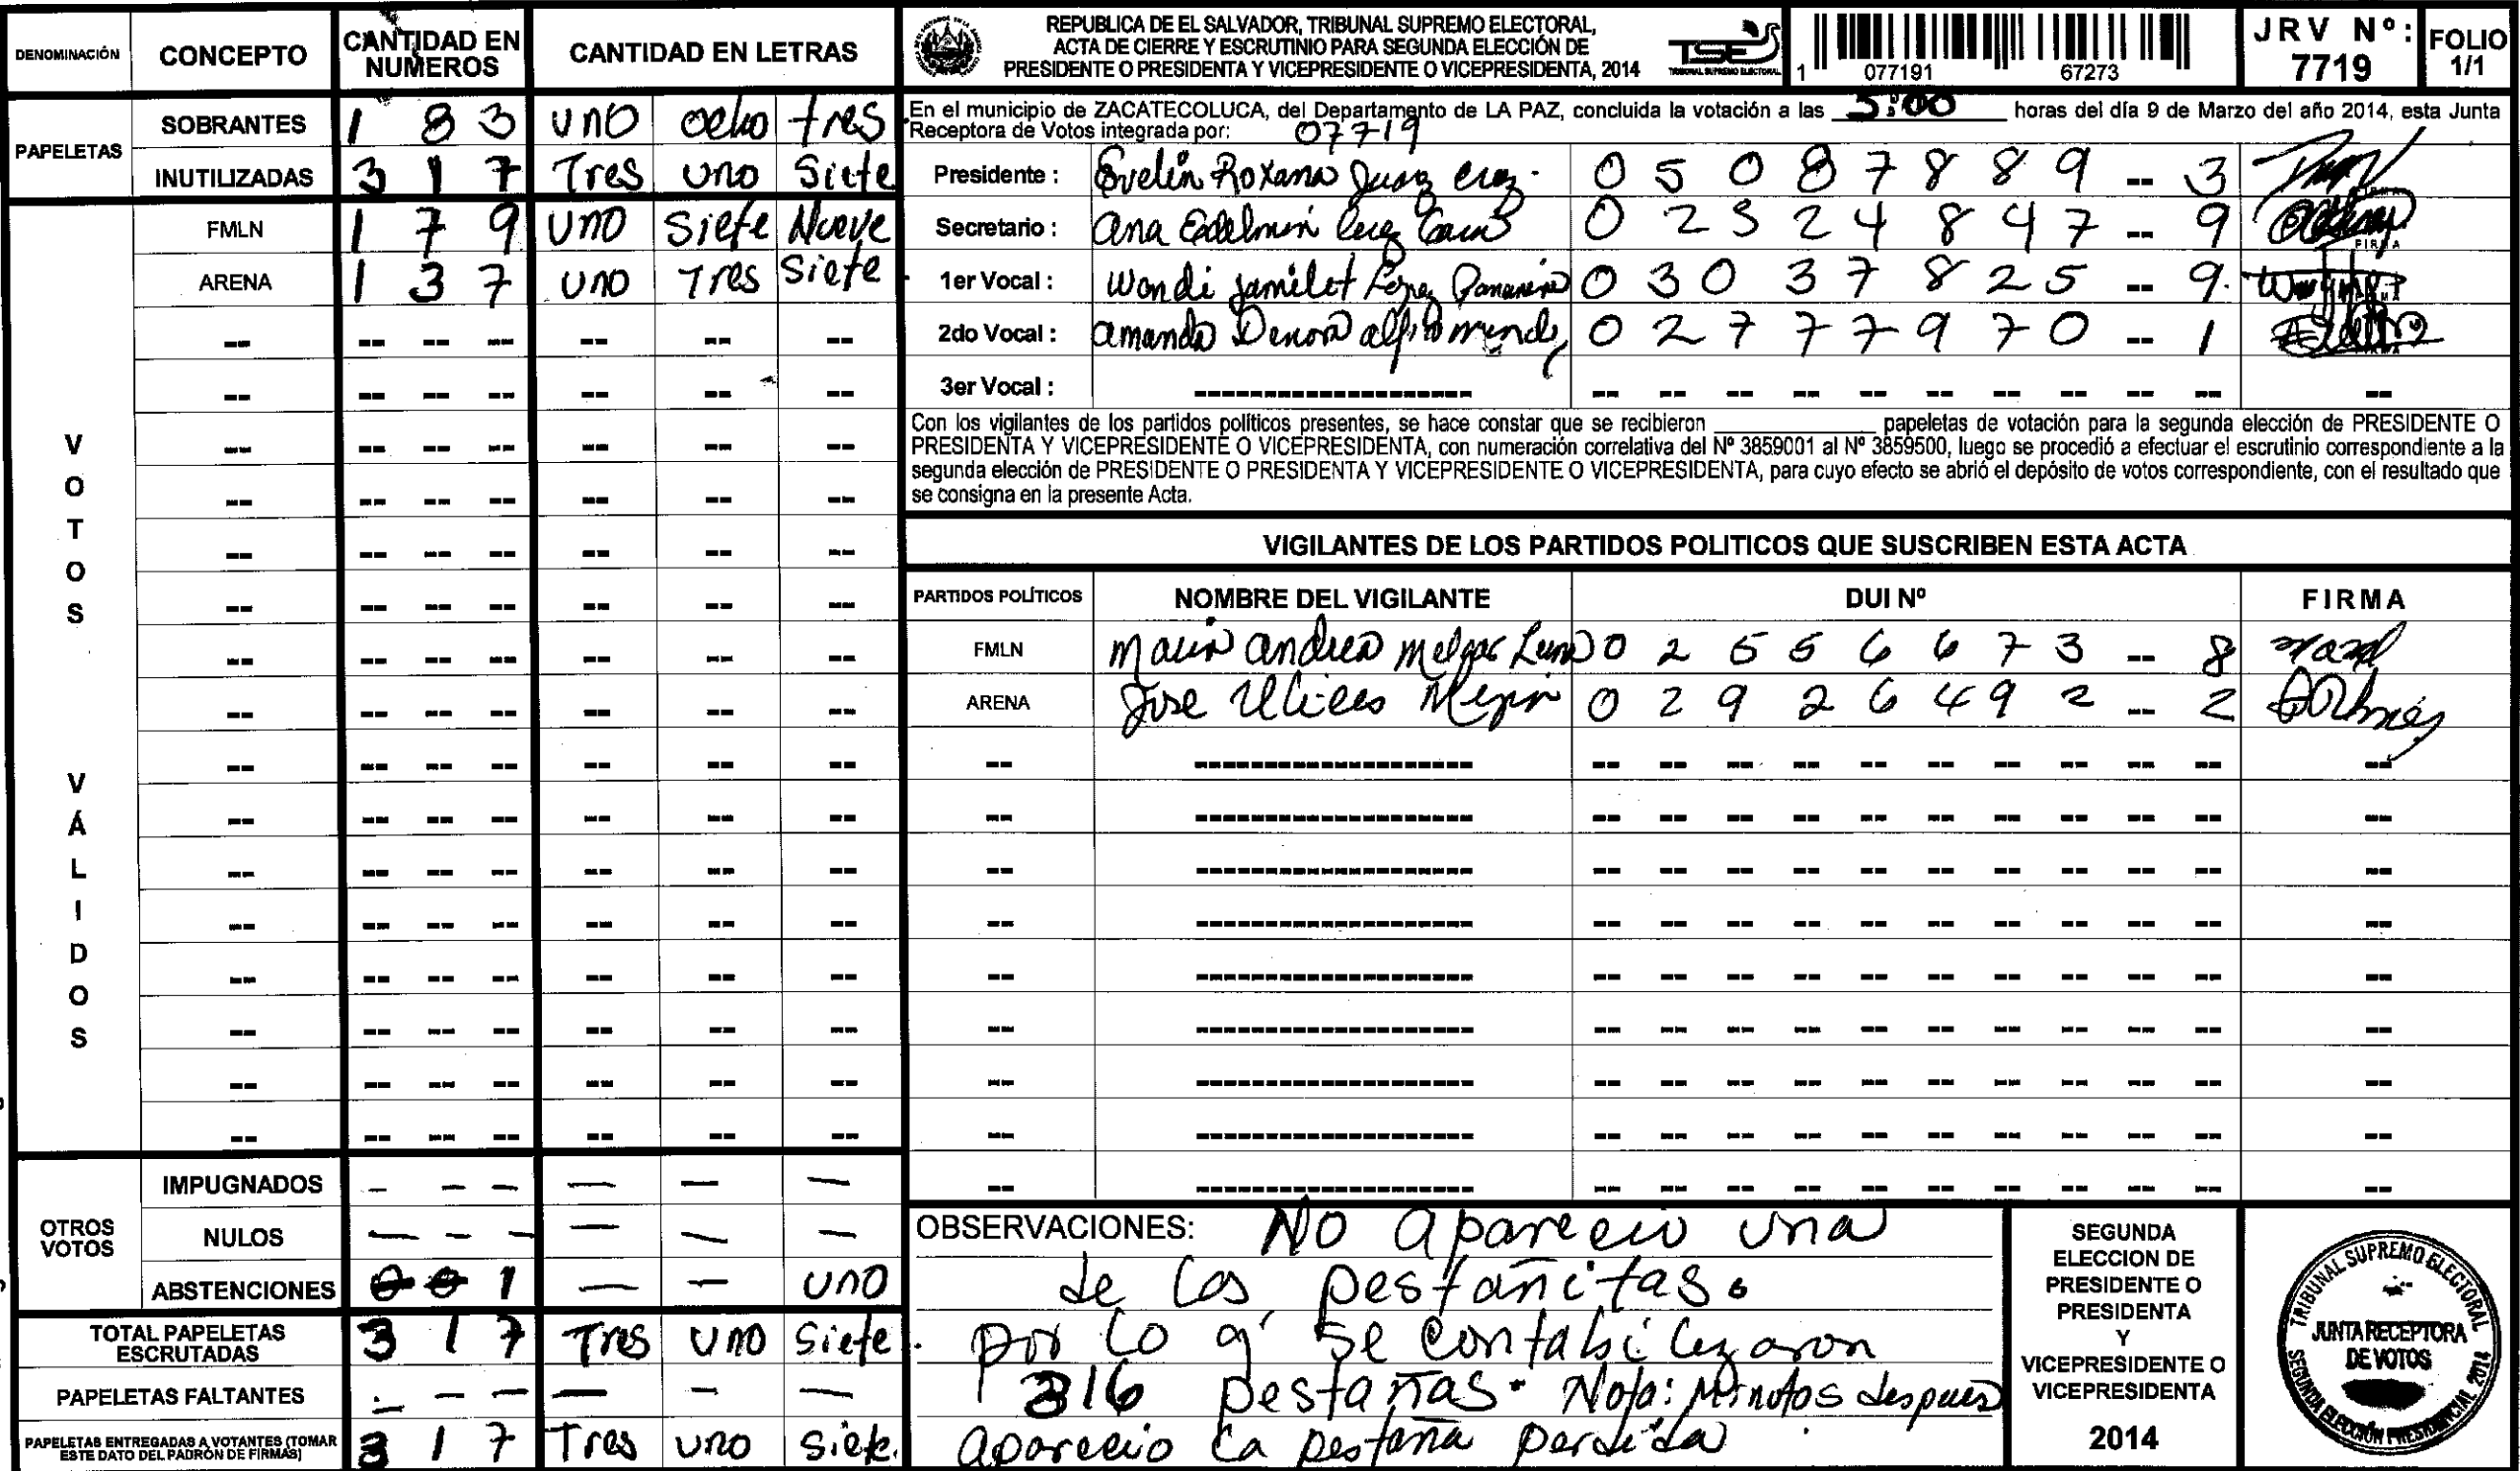 DENOMINACIÓN CONCEPTO CANTIDAD EN NUMEROS CANTIDAD EN LETRAS
PAPELETAS
SOBRANTES 1 8 3 uno ocho tres
INUTILIZADAS 3 1 7 Tres uno Siete
VOTOS VÁLIDOS
FMLN 1 7 9 uno Siete Nueve
ARENA 1 3 7 uno Tres Siete
OTROS VOTOS
IMPUGNADOS - - - - - -
NULOS - - - - - -
ABSTENCIONES 0 0 1 - - uno
TOTAL PAPELETAS ESCRUTADAS 3 1 7 Tres uno Siete
PAPELETAS FALTANTES - - - - - -
PAPELETAS ENTREGADAS A VOTANTES (TOMAR ESTE DATO DEL PADRÓN DE FIRMAS) 3 1 7 Tres uno Siete
REPUBLICA DE EL SALVADOR, TRIBUNAL SUPREMO ELECTORAL,
ACTA DE CIERRE Y ESCRUTINIO PARA SEGUNDA ELECCIÓN DE
PRESIDENTE O PRESIDENTA Y VICEPRESIDENTE O VICEPRESIDENTA, 2014
TSE
TRIBUNAL SUPREMO ELECTORAL
1 077191 67273
JRV Nº: 7719
FOLIO 1/1
En el municipio de ZACATECOLUCA, del Departamento de LA PAZ, concluida la votación a las 5:00 horas del día 9 de Marzo del año 2014, esta Junta
Receptora de Votos integrada por: 07719
Presidente : Evelin Roxana 0 5 0 8 7 8 8 9 -- 3
Secretario : Ana 0 2 3 2 4 8 4 7 -- 9
1er Vocal : Wendi Jamilet López 0 3 0 3 7 8 2 5 -- 9
2do Vocal : Amanda 0 2 7 7 7 9 7 0 -- 1
3er Vocal :
Con los vigilantes de los partidos políticos presentes, se hace constar que se recibieron ____ papeletas de votación para la segunda elección de PRESIDENTE O
PRESIDENTA Y VICEPRESIDENTE O VICEPRESIDENTA, con numeración correlativa del Nº 3859001 al Nº 3859500, luego se procedió a efectuar el escrutinio correspondiente a la
segunda elección de PRESIDENTE O PRESIDENTA Y VICEPRESIDENTE O VICEPRESIDENTA, para cuyo efecto se abrió el depósito de votos correspondiente, con el resultado que
se consigna en la presente Acta.
VIGILANTES DE LOS PARTIDOS POLITICOS QUE SUSCRIBEN ESTA ACTA
PARTIDOS POLÍTICOS NOMBRE DEL VIGILANTE DUI Nº FIRMA
FMLN Maria Andrea Melgar Luna 0 2 5 5 6 6 7 3 -- 8
ARENA Jose Ulices Mejia 0 2 9 2 6 4 9 2 -- 2
OBSERVACIONES: No aparecio una
de las pestañitas.
por lo q' se contabilizaron
316 pestañas. Nota: Minutos despues
aparecio la pestaña perdida
SEGUNDA
ELECCION DE
PRESIDENTE O
PRESIDENTA
Y
VICEPRESIDENTE O
VICEPRESIDENTA
2014
TRIBUNAL SUPREMO ELECTORAL
JUNTA RECEPTORA
DE VOTOS
SEGUNDA ELECCIÓN PRESIDENCIAL 2014